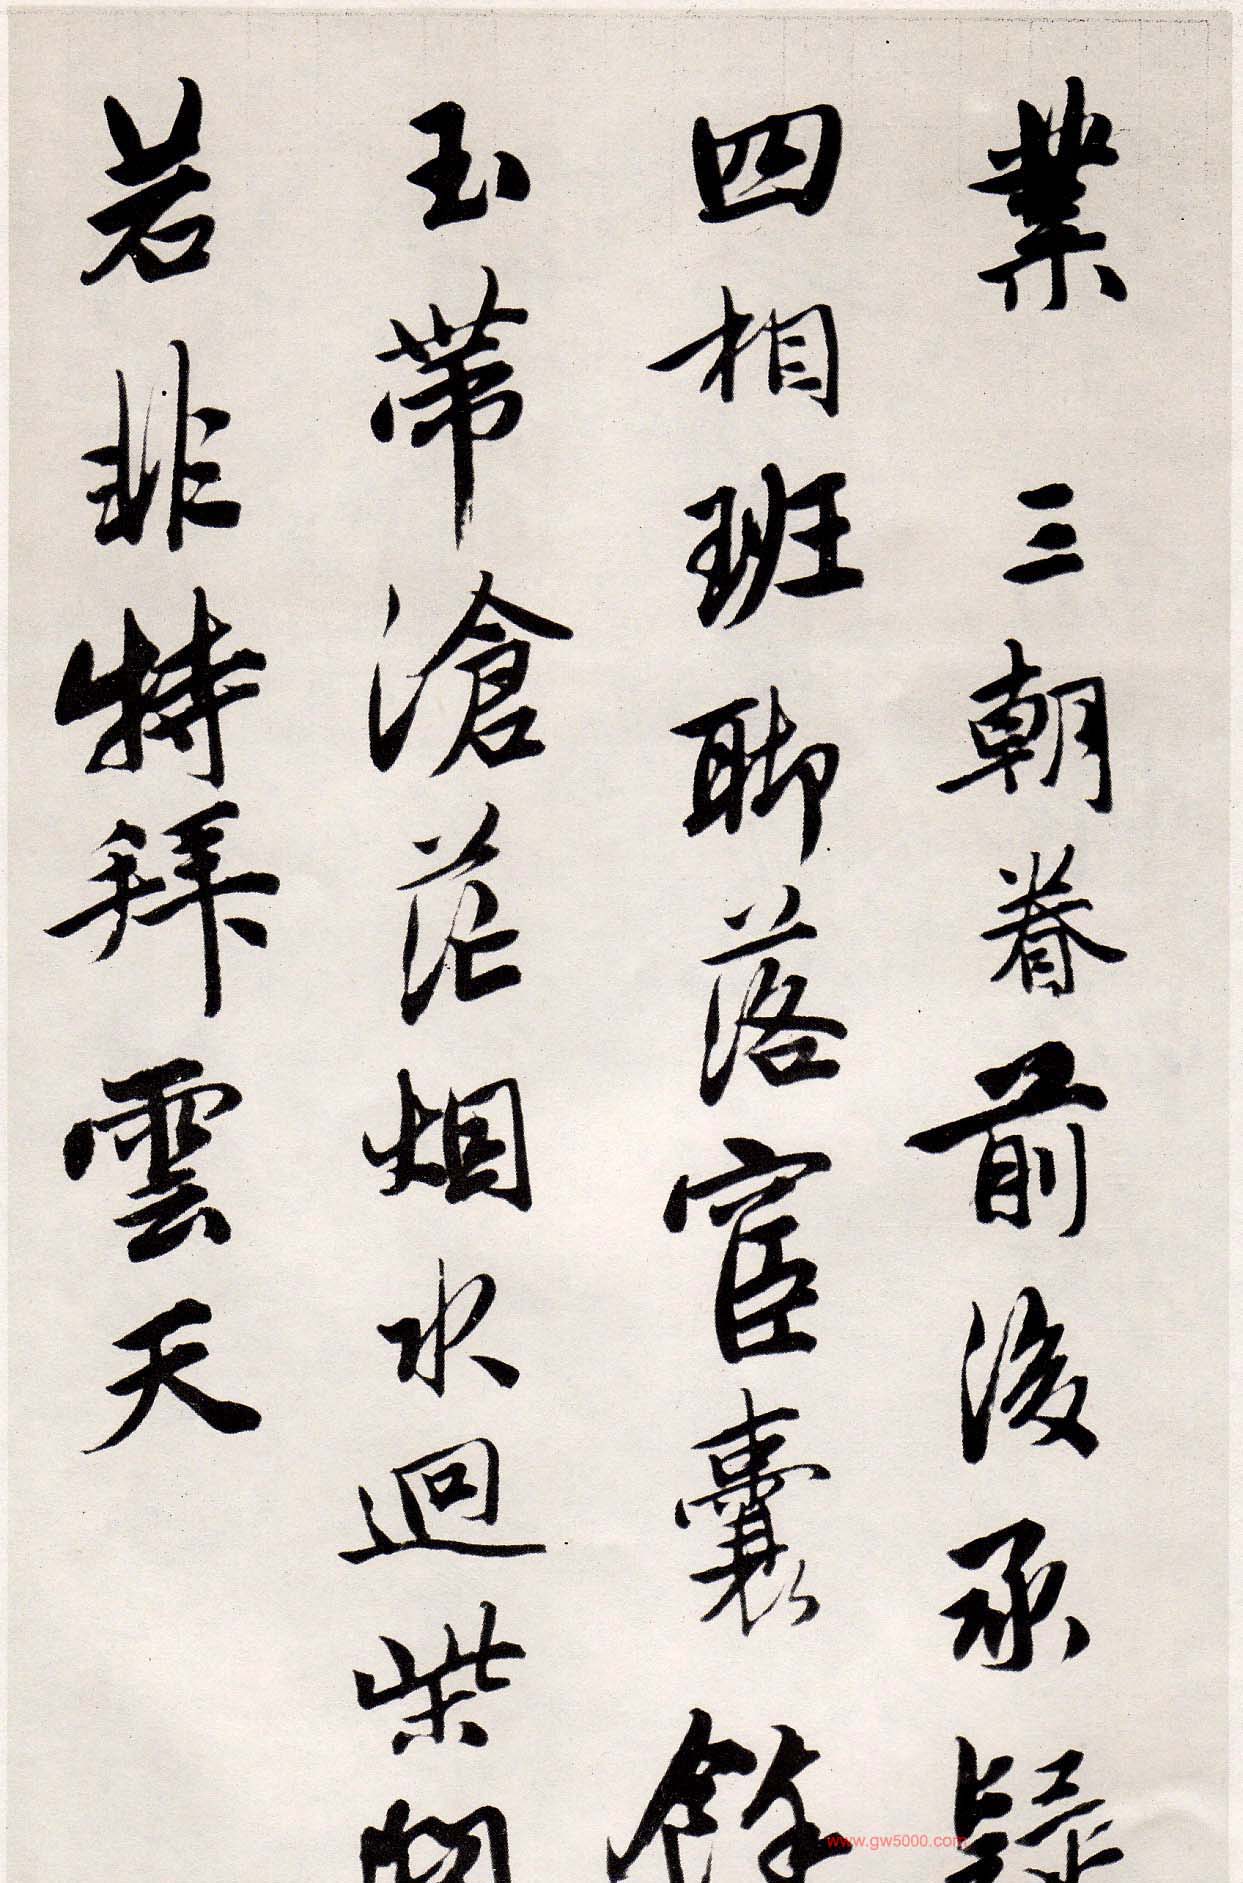 業 三朝眷前後丞疑
四相班聊落宦囊餘
玉帶滄茫烟水迥柴門
若非特拜雲天
www.gw5000.com